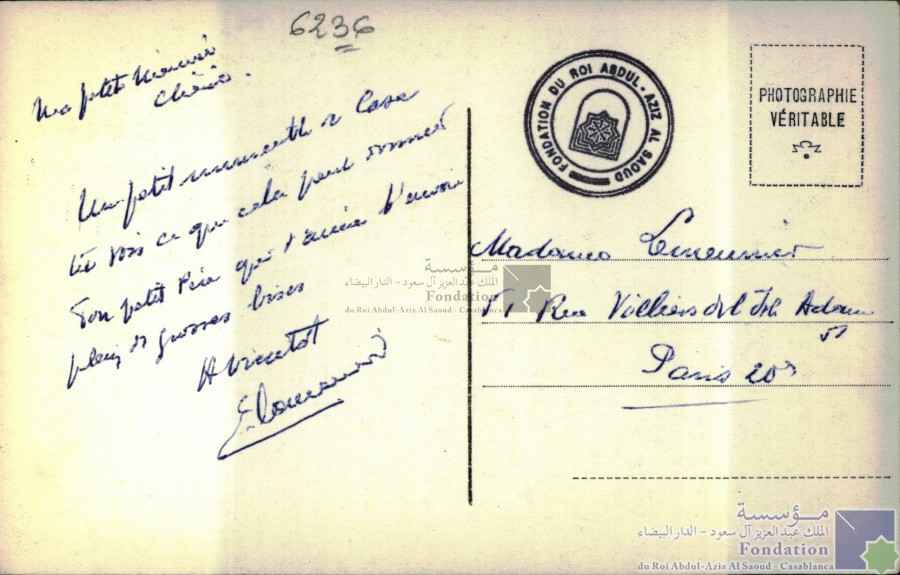 6236
Ma petite Mémée
Chérie.
Un petit monument de Casa
tu vois ce que cela peut donner
Ton petit Père qui t'aime t'envoie
plein de grosses bises
A bientôt
FONDATION DU ROI ABDUL-AZIZ AL SAOUD
PHOTOGRAPHIE
VÉRITABLE
Madame Lemeunier
51 Rue Villiers de l'Isle Adam
51
Paris 20e
مؤسسة
الملك عبد العزيز آل سعود - الدار البيضاء
Fondation
du Roi Abdul-Aziz Al Saoud - Casablanca
مؤسسة
الملك عبد العزيز آل سعود - الدار البيضاء
Fondation
du Roi Abdul-Aziz Al Saoud - Casablanca